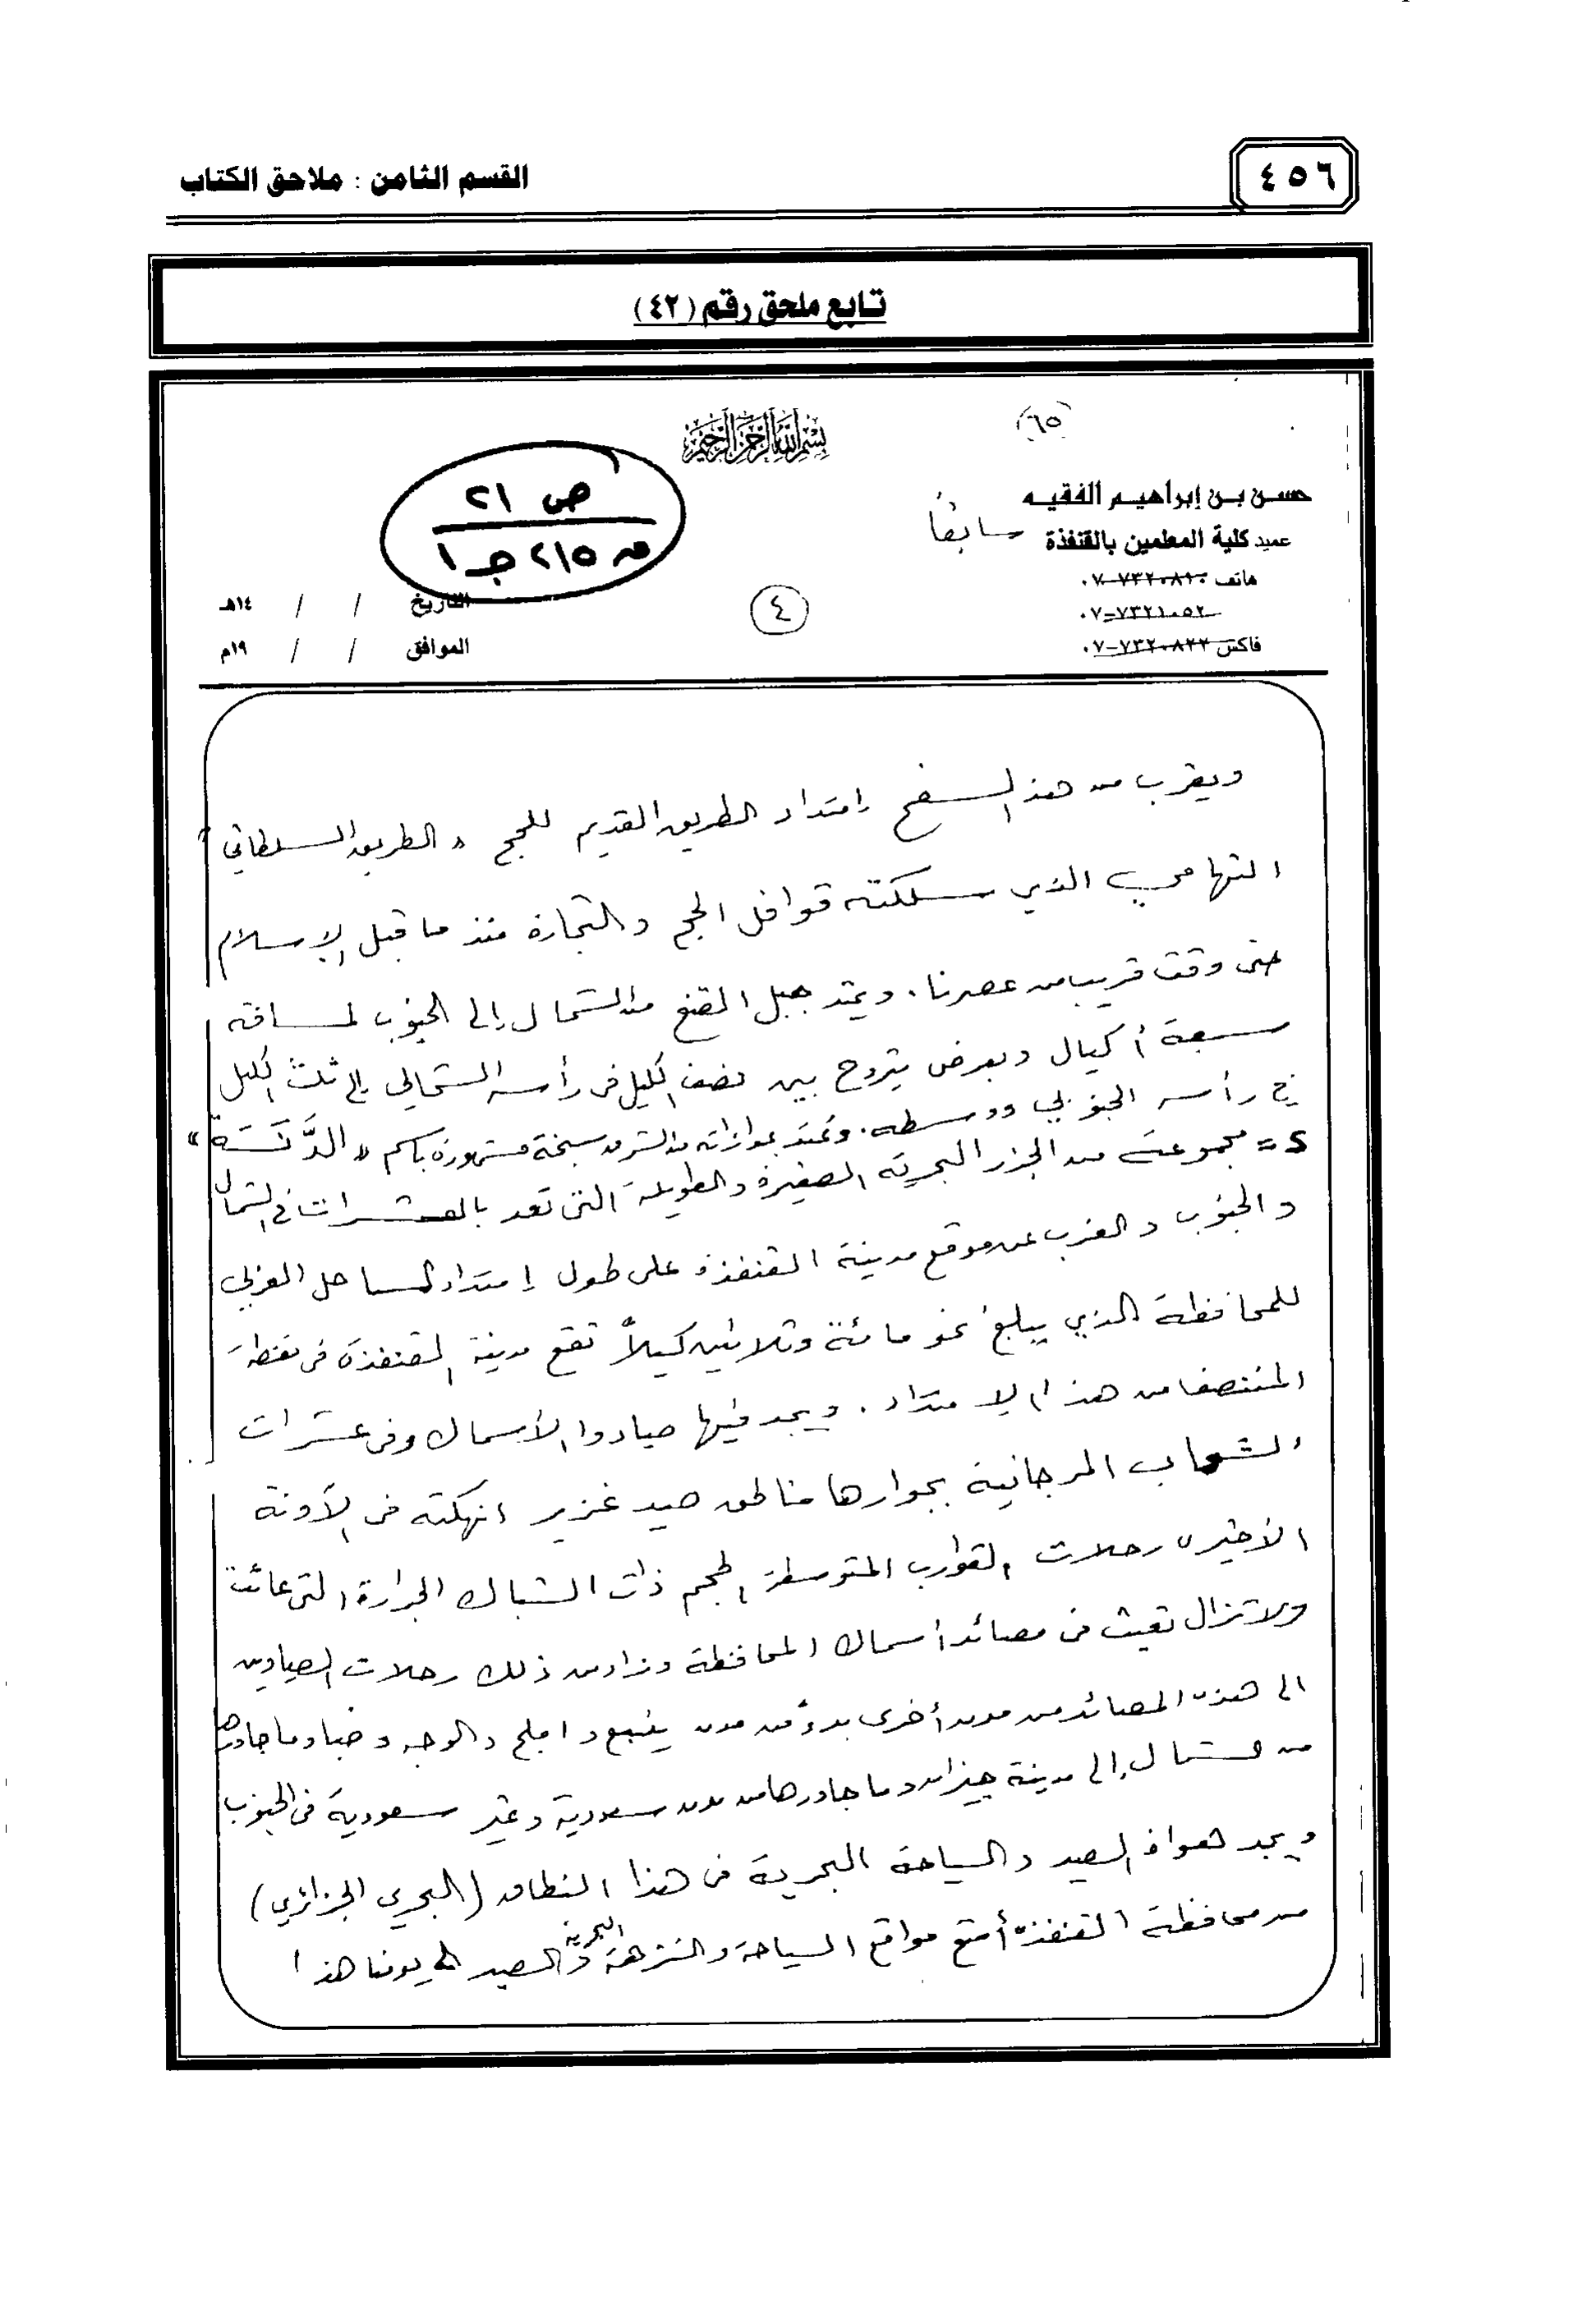 ٤٥٦
القسم الثامن : ملاحق الكتاب
تابع ملحق رقم (٤٢)
(٦٥)
بسم الله الرحمن الرحيم
حسن بن إبراهيم الفقيه
عميد كلية المعلمين بالقنفذة سابقاً
هاتف ٧٣٢٠٨١٠-٠٧
٧٣٢١٠٥٢-٠٧
فاكس ٧٣٢٠٨٢٢-٠٧
٤
ص ٢١
٢١٥ جـ ١
التاريخ / / ١٤هـ
الموافق / / ١٩م
ويقرب من هذا السفح امتداد الطريق القديم للحج « الطريق السلطاني »
التهامي الذي سلكته قوافل الحج والتجارة منذ ما قبل الإسلام
حتى وقت قريب من عصرنا. ويمتد جبل المقنع من الشمال إلى الجنوب لمسافة
سبعة أكيال وبعرض يتروح بين نصف الكيل في رأسه الشمالي إلى ثلث الكيل
في رأسه الجنوبي ووسطه. وتمتد بموازاته من الشرق سبخة مشهورة باسم « الدَّكَسَة »
٢ = مجموعة من الجزر البحرية الصغيرة والطويلة التي تعد بالعشرات في الشمال
والجنوب والغرب عن موقع مدينة القنفذة على طول إمتداد الساحل الغربي
للمحافظة الذي يبلغ نحو مائة وثلاثين كيلاً تقع مدينة القنفذة في نقطة
المنتصف من هذا الإمتداد. ويجد فيها صيادوا الأسماك وفي عشرات
الشعاب المرجانية بجوارها مناطق صيد غزير انهكته في الآونة
الأخيرة رحلات القوارب المتوسطة الحجم ذات الشباك الجرارة التي عاثت
ولا تزال تعيث في مصائد أسماك المحافظة وزاد من ذلك رحلات الصيادين
الى هذه المصائد من مدن أخرى بدءً من مدن ينبع واملج والوجه وضبا وما جاورها
من شمال إلى مدينة جيزان وما جاورها من مدن سعودية وغير سعودية في الجنوب
ويجد هواة الصيد والسياحة البحرية في هذا النطاق (البحري الجزائري)
من محافظة القنفذة أمتع مواقع السياحة والنزهة البحرية والصيد الى يومنا هذا